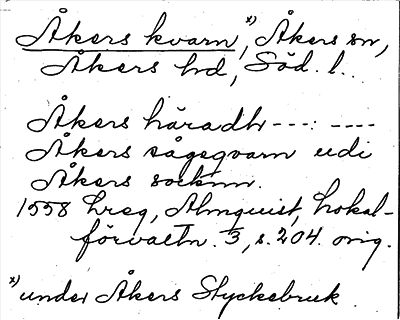 Åkers kvarn,ˣ⁾ Åkers sn,
Åkers hd, Söd. l..
Åkers häradh ---: ----
Åkers sågeqvarn udi
Åkers socknn.
1558 hreg, Almquist, Lokal-
förvaltn. 3, s. 204. orig.
ˣ⁾ under Åkers Styckebruk.